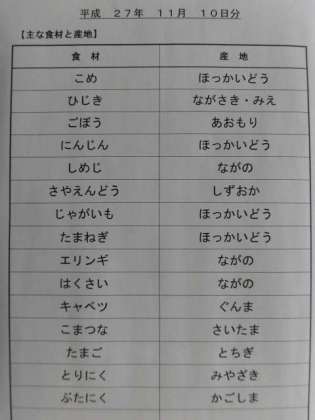 平成 27年 11月 10日分
【主な食材と産地】
食 材 産 地
こめ ほっかいどう
ひじき ながさき・みえ
ごぼう あおもり
にんじん ほっかいどう
しめじ ながの
さやえんどう しずおか
じゃがいも ほっかいどう
たまねぎ ほっかいどう
エリンギ ながの
はくさい ながの
キャベツ ぐんま
こまつな さいたま
たまご とちぎ
とりにく みやざき
ぶたにく かごしま